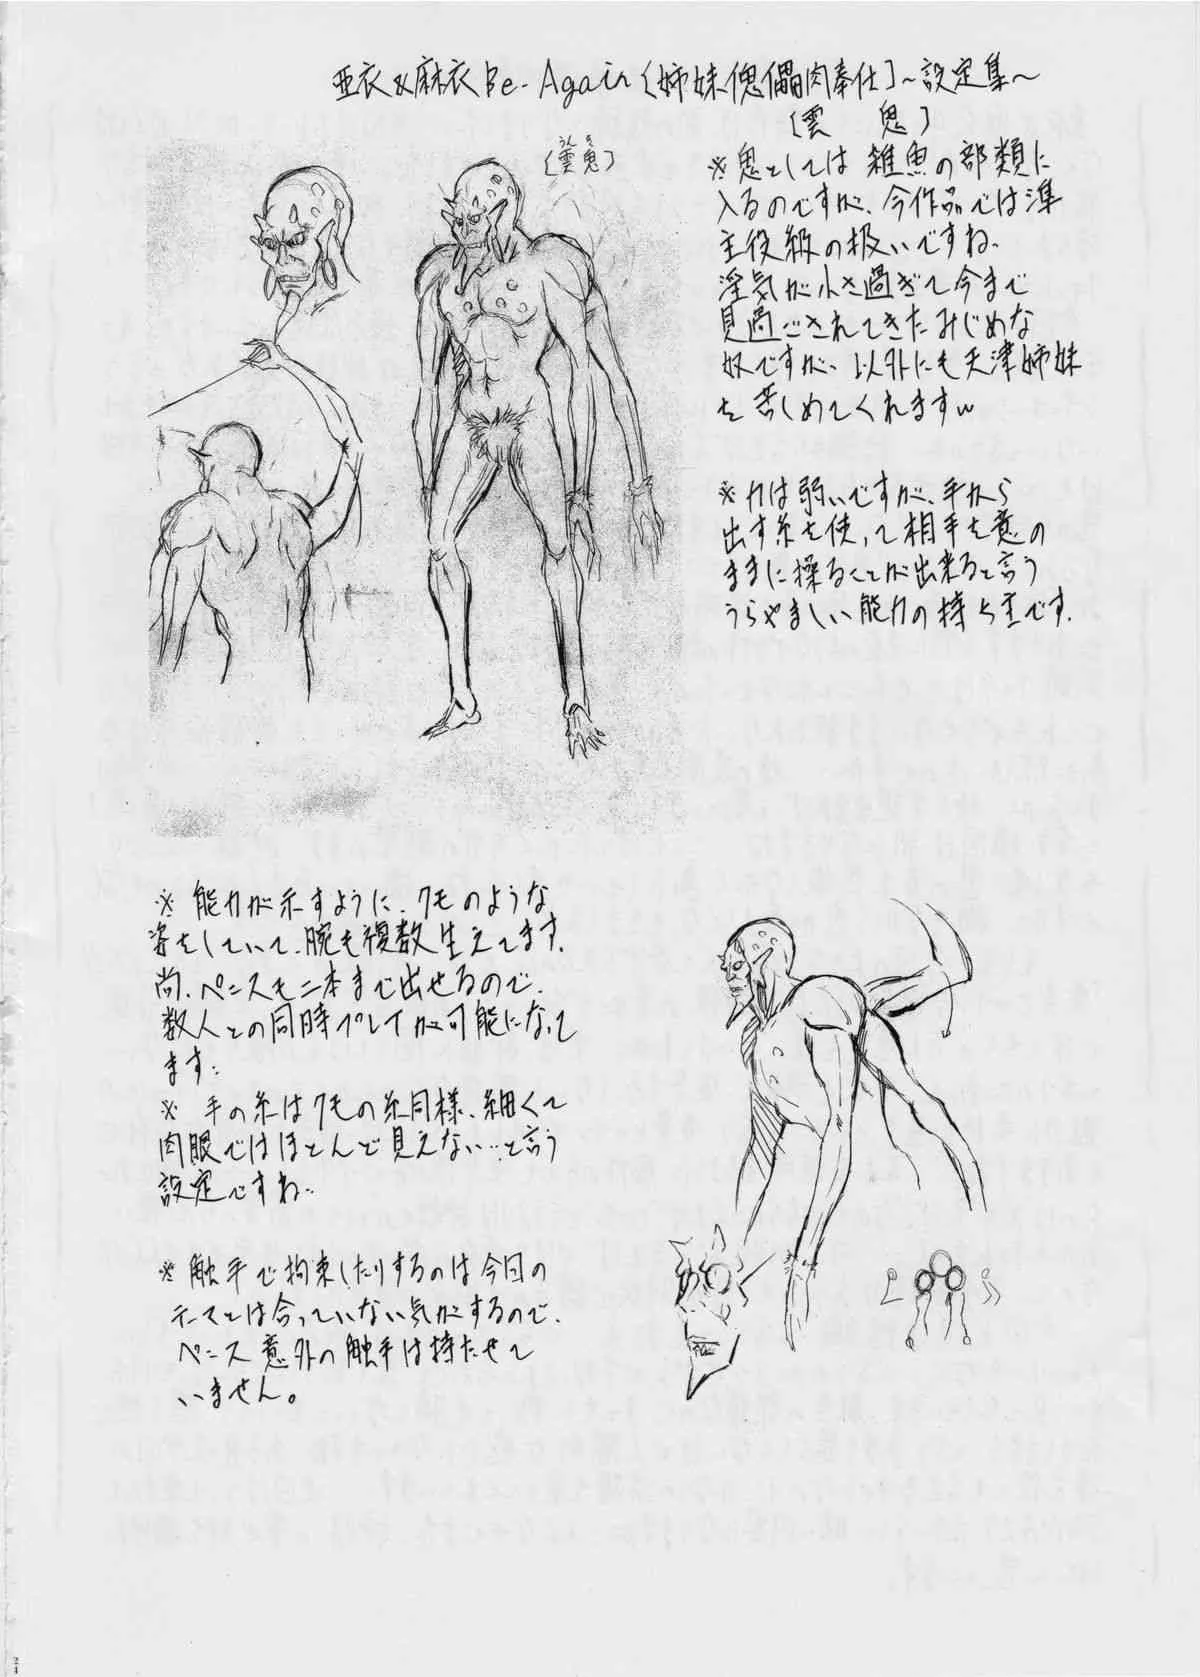 亜衣&麻衣Be-Again〔姉妹傀儡肉奉仕〕~設定集~
〔雲鬼〕
〔雲鬼〕
うん き
※鬼としては雑魚の部類に
入るのですが、今作品では準
主役級の扱いですね。
淫気が小さ過ぎて今まで
見過ごされてきたみじめな
奴ですが、以外にも天津姉妹
を苦しめてくれますw
※力は弱いですが、手から
出す糸を使って相手を意の
ままに操ることが出来ると言う
うらやましい能力の持ち主です.
※能力が示すように、クモのような
姿をしていて、腕も複数生えてます.
尚、ペニスも二本まで出せるので、
数人との同時プレイが可能になって
ます..
※手の糸はクモの糸同様、細くて
肉眼ではほとんど見えない…と言う
設定ですね..
※触手で拘束したりするのは今回の
テーマとは合っていない気がするので、
ペニス意外の触手は持たせて
いません。